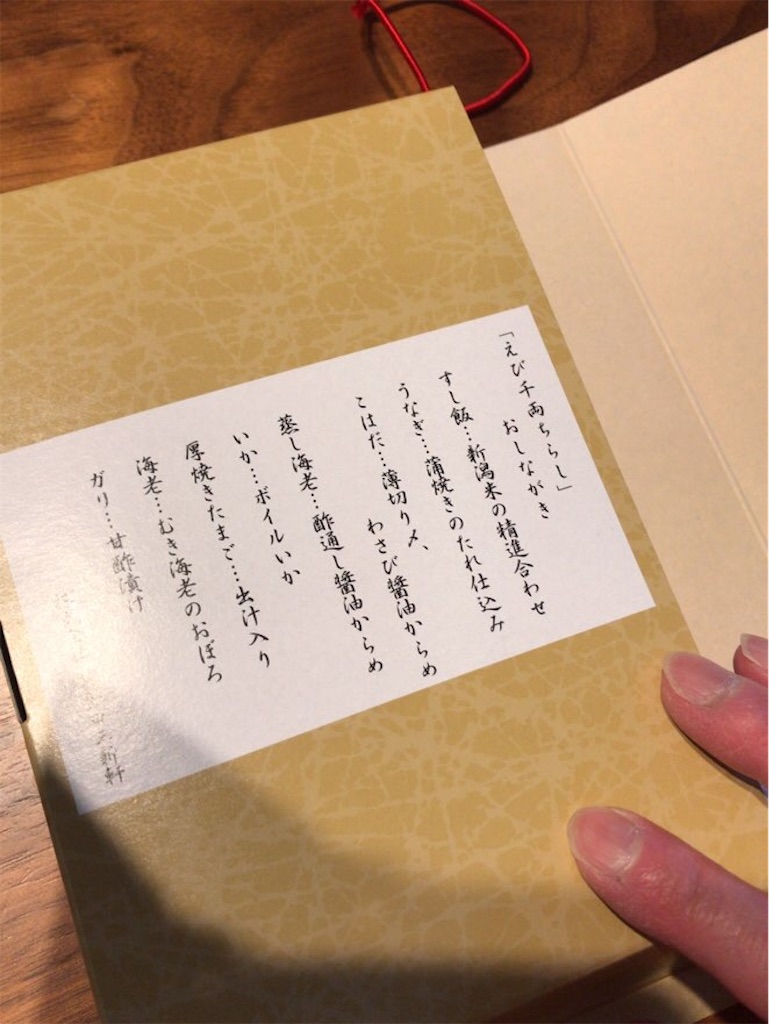 「えび千両ちらし」
おしながき
すし飯…新潟米の精進合わせ
うなぎ…蒲焼きのたれ仕込み
こはだ…薄切り〆、
わさび醤油からめ
蒸し海老…酢通し醤油からめ
いか…ボイルいか
厚焼きたまご…出汁入り
海老…むき海老のおぼろ
ガリ…甘酢漬け
新軒